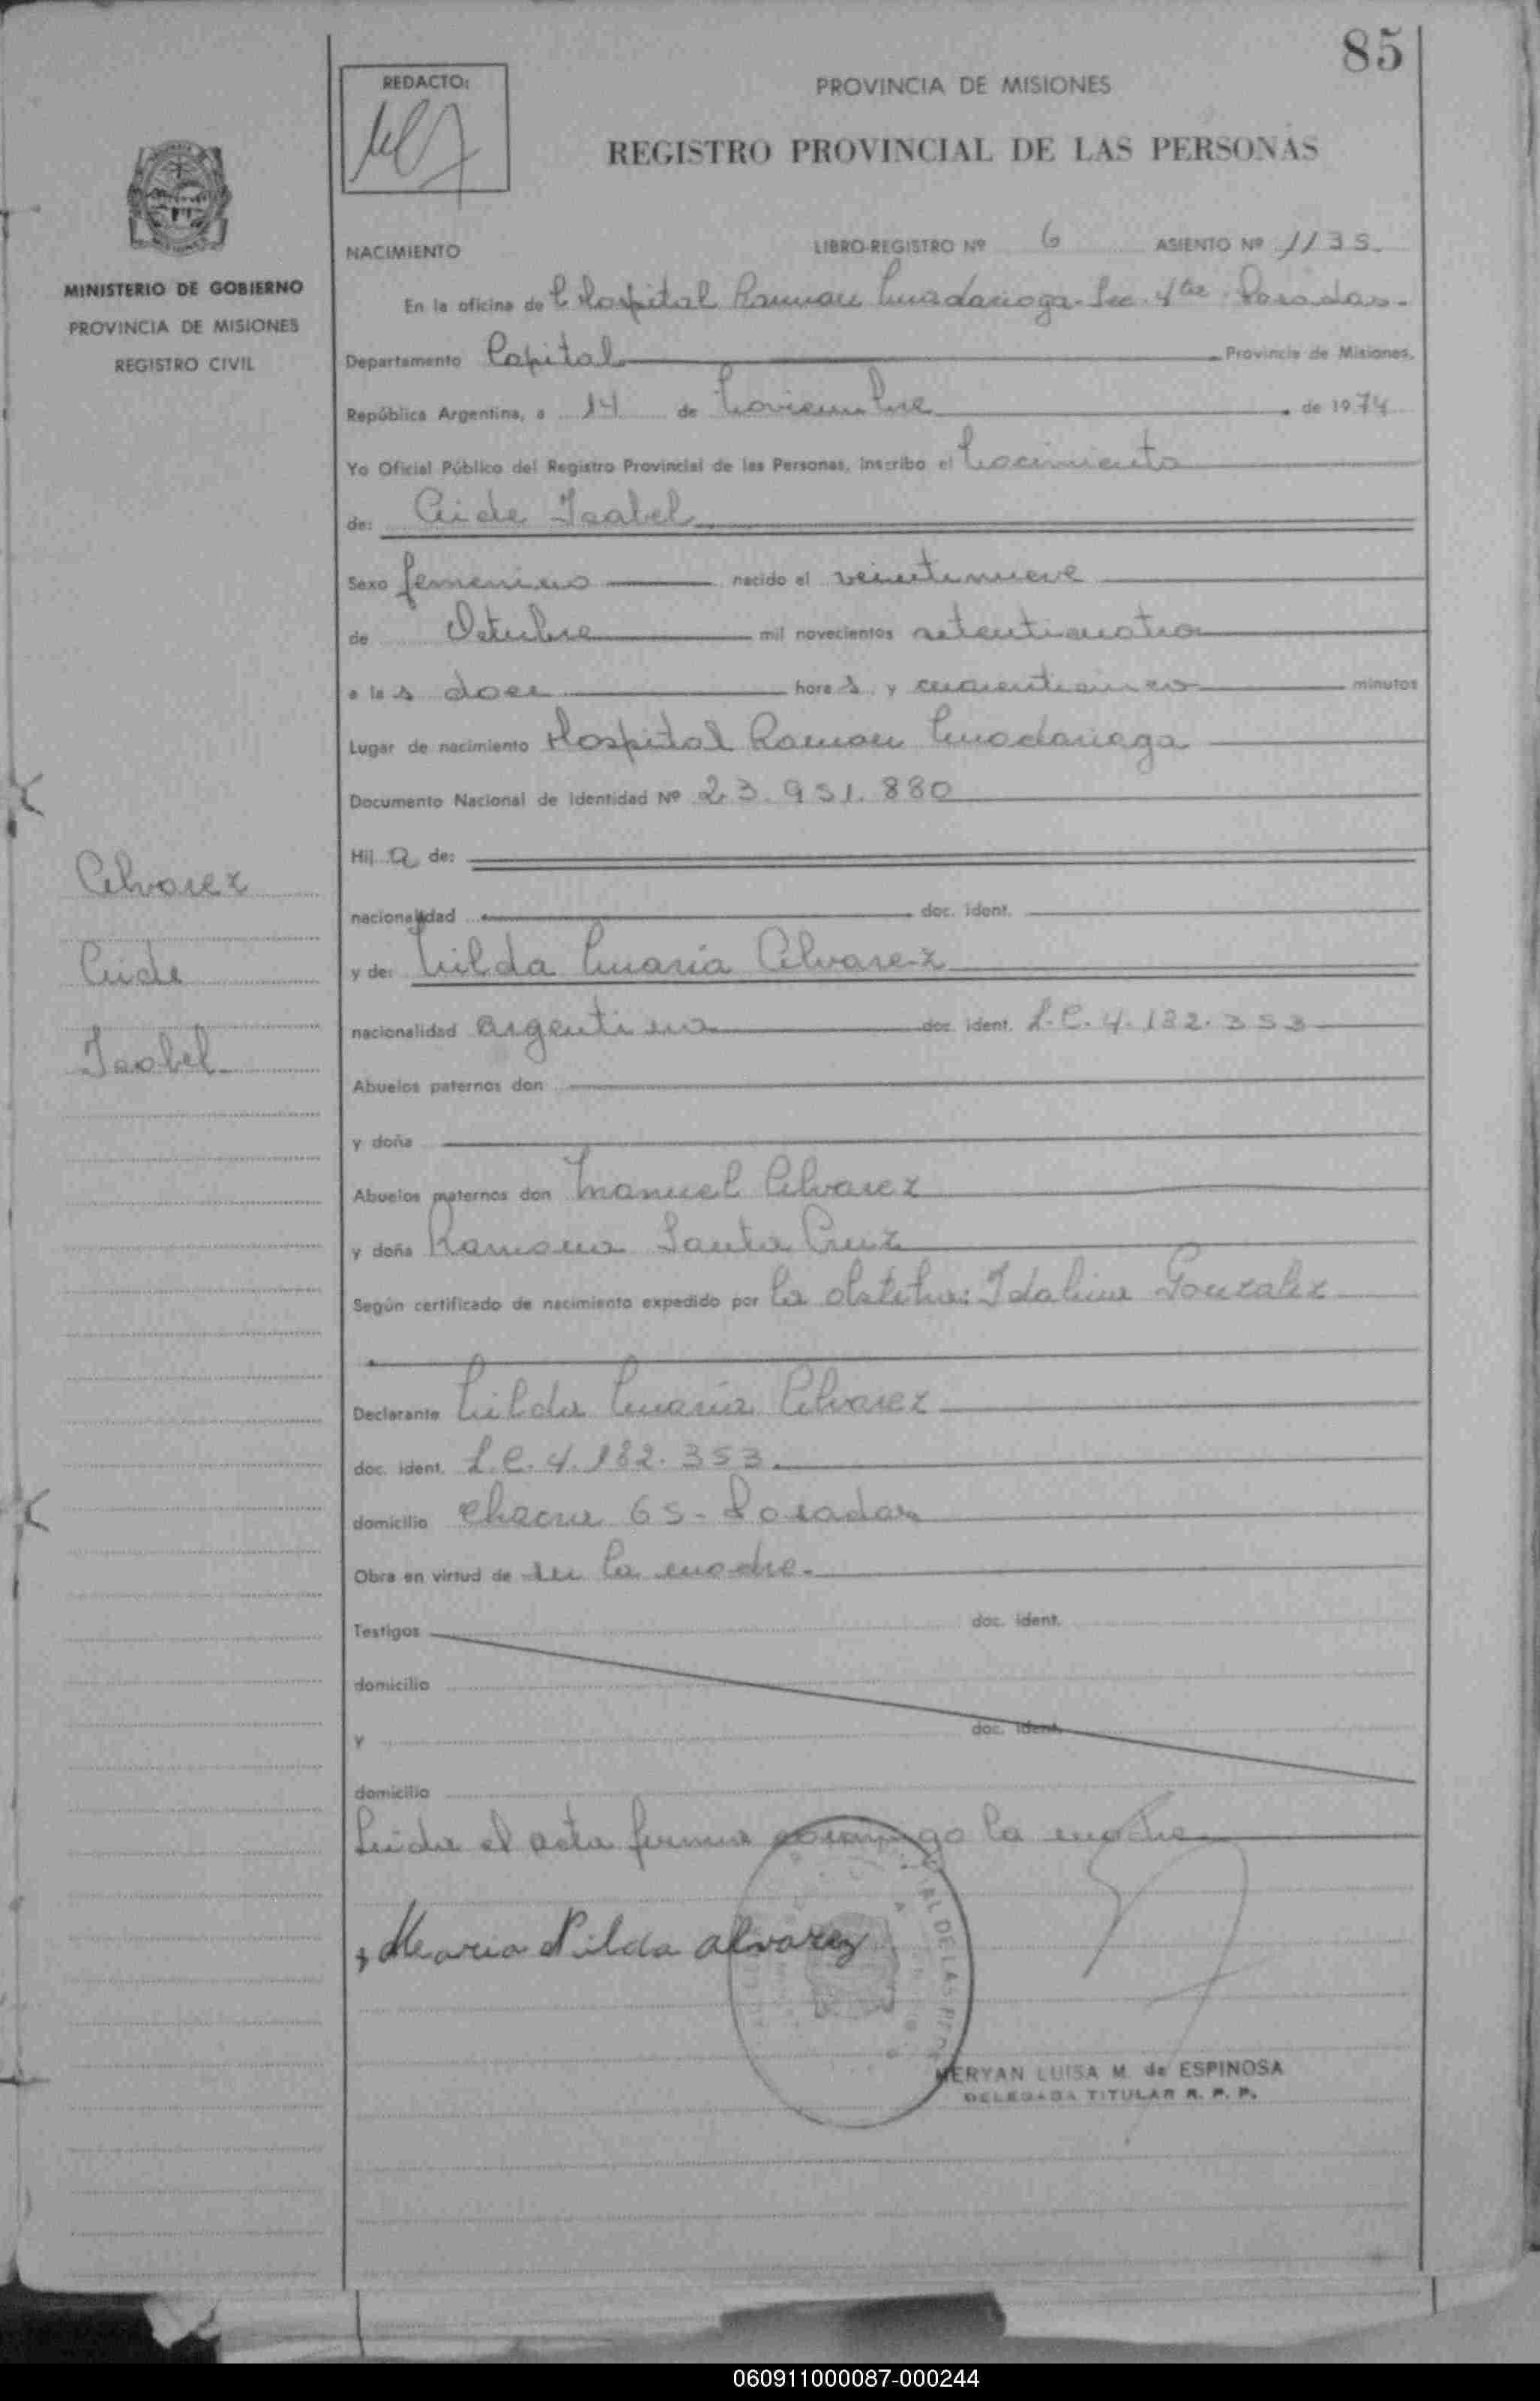 85
REDACTO:
PROVINCIA DE MISIONES
REGISTRO PROVINCIAL DE LAS PERSONAS
MINISTERIO DE GOBIERNO
PROVINCIA DE MISIONES
REGISTRO CIVIL
NACIMIENTO LIBRO-REGISTRO Nº 6 ASIENTO Nº 1135.
En la oficina de Hospital Ramon Madariaga - Sec. 4ta Posadas.-
Departamento Capital Provincia de Misiones,
República Argentina, a 14 de Noviembre de 1974
Yo Oficial Público del Registro Provincial de las Personas, Inscribo el Nacimiento
de: Aide Isabel
Sexo femenino nacido el veintinueve
de Octubre mil novecientos setenticuatro
a las doce horas y cuarenticinco minutos
Lugar de nacimiento Hospital Ramon Madariaga
Documento Nacional de Identidad Nº 23.951.880
Hija de:
nacionalidad doc. ident.
y de: Nilda Maria Alvarez
nacionalidad argentina doc. ident. L.C. 4.182.353
Abuelos paternos don
y doña
Abuelos maternos don Manuel Alvarez
y doña Ramona Santa Cruz
Según certificado de nacimiento expedido por la obstetra: Idalina Gonzalez
Declarante Nilda Maria Alvarez
doc. ident. L.C. 4.182.353.
domicilio Chacra 65 - Posadas
Obra en virtud de ser la madre.
Testigos doc. ident.
domicilio
y doc. ident.
domicilio
Leida el acta firma conmigo la madre
Maria Nilda alvarez
Alvarez
Aide
Isabel
AL DE LAS PERS
NERYAN LUISA M. de ESPINOSA
DELEGADA TITULAR R. P. P.
060911000087-000244